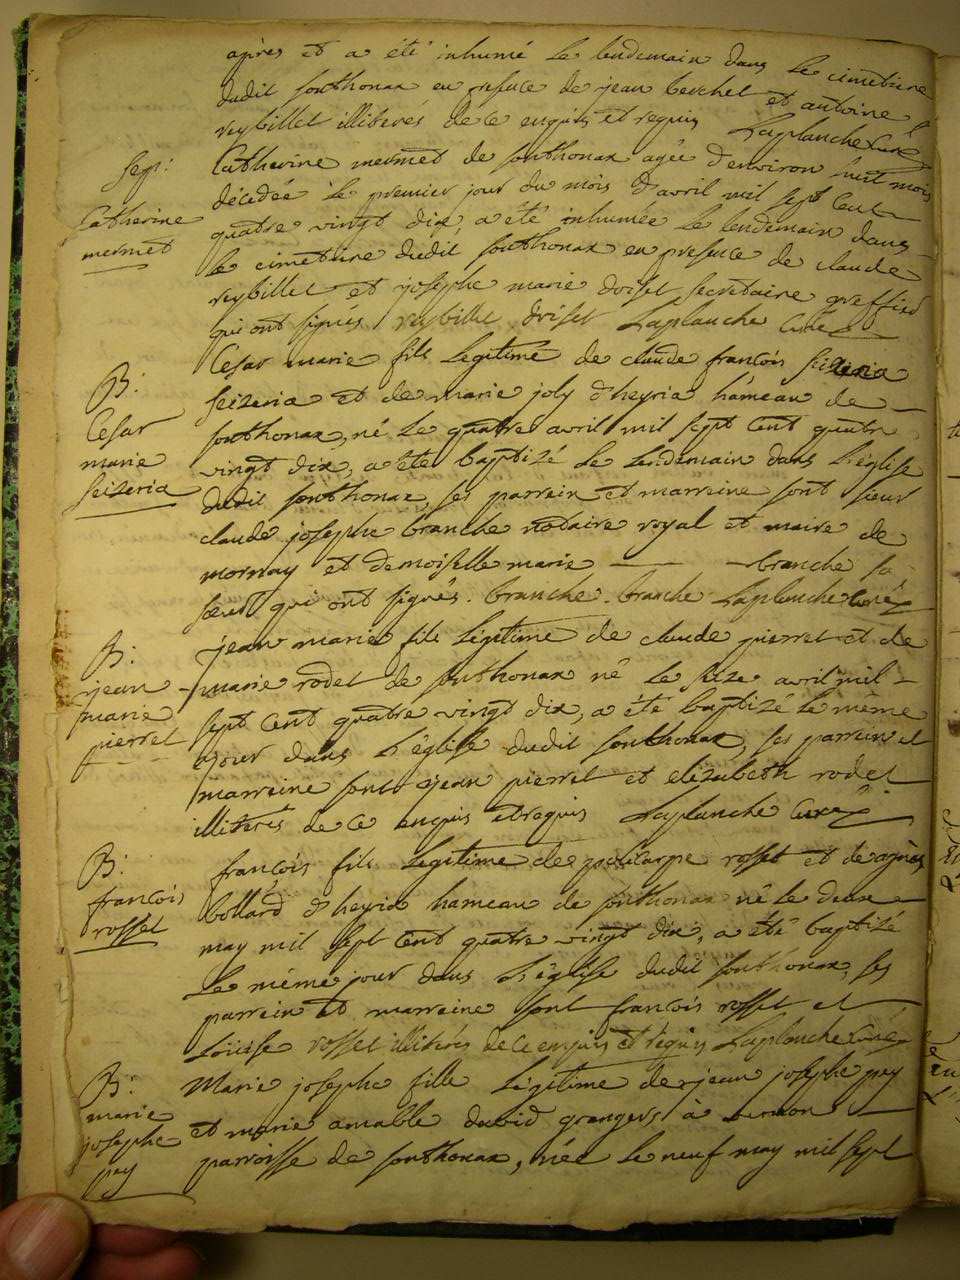 après et a été inhumé le lendemain dans le cimetiere
dudit sonthonax en presence de jean berchet et antoine
reybillet illiterés de ce enquis et requis Laplanche Curé
Sep:
Catherine
mermet
Catherine mermet de sonthonax agée d'environ huit mois
décédée le premier jour du mois d'avril mil sept Cent
quatre vingt dix, a été inhumée le lendemain dans
le cimetiere dudit sonthonax en presence de claude
reybillet et josephe marie doiset secretaire greffier
qui ont signés reybillet doiset Laplanche Curé
B:
Cesar
marie
seizeria
Cesar marie fils Legitime de claude françois seizeria
seizeria et de marie joly d'heyria hámeau de
sonthonax, né le quatre avril mil sept Cent quatre
vingt dix, a été baptizé le lendemain dans L'église
dudit sonthonax, ses parrein et marreine sont sieur
claude josephe branche notaire royal et maire de
mornay et demoiselle marie branche sa
soeur qui ont signés. branche. branche Laplanche Curé
B:
jean
marie
pierret
jean marie fils Légitime de claude pierret et de
marie rodet de sonthonax né le seize avril mil
sept Cent quatre vingt dix, a été baptizé le même
jour dans L'église dudit sonthonax, ses parrein et
marreine sont jean pierret et elizabeth rodet
illiterés de ce enquis et requis Laplanche Curé
B:
françois
rosset
françois fils Legitime de policarpe rosset et de agnès
bollard d'heyria hameau de sonthonax né le deux
may mil sept Cent quatre vingt dix, a été baptizé
le même jour dans L'église dudit sonthonax, ses
parrein et marreine sont françois rosset et
Loüise rosset illiterés de ce enquis et requis Laplanche Curé
B:
marie
josephe
pey
Marie josephe fille Légitime de jean josephe pey
et marie amable david grangers à
parroisse de sonthonax, née le neuf may mil sept